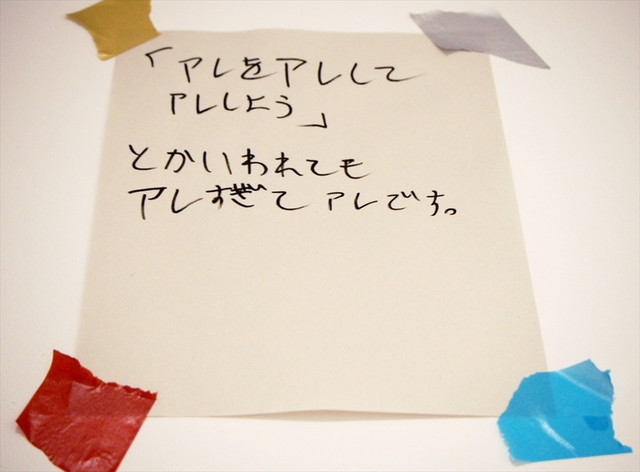 「アレをアレして
アレしよう」
とかいわれても
アレすぎて アレです。